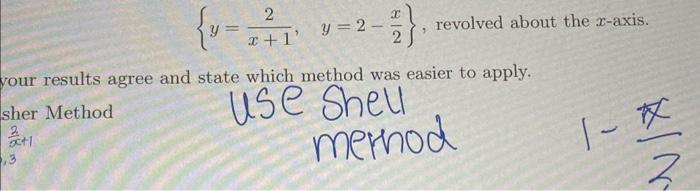 {y = 2/(x + 1), y = 2 − x/2}, revolved about the x-axis.
your results agree and state which method was easier to apply.
sher Method use shell
2/(x+1) method 1 - x/2
,3